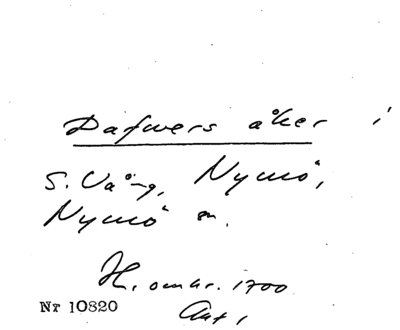 Dafwers åker i
S. Vång, Nymö,
Nymö sn.
H. omkr. 1700
Nr 10820
Ant.